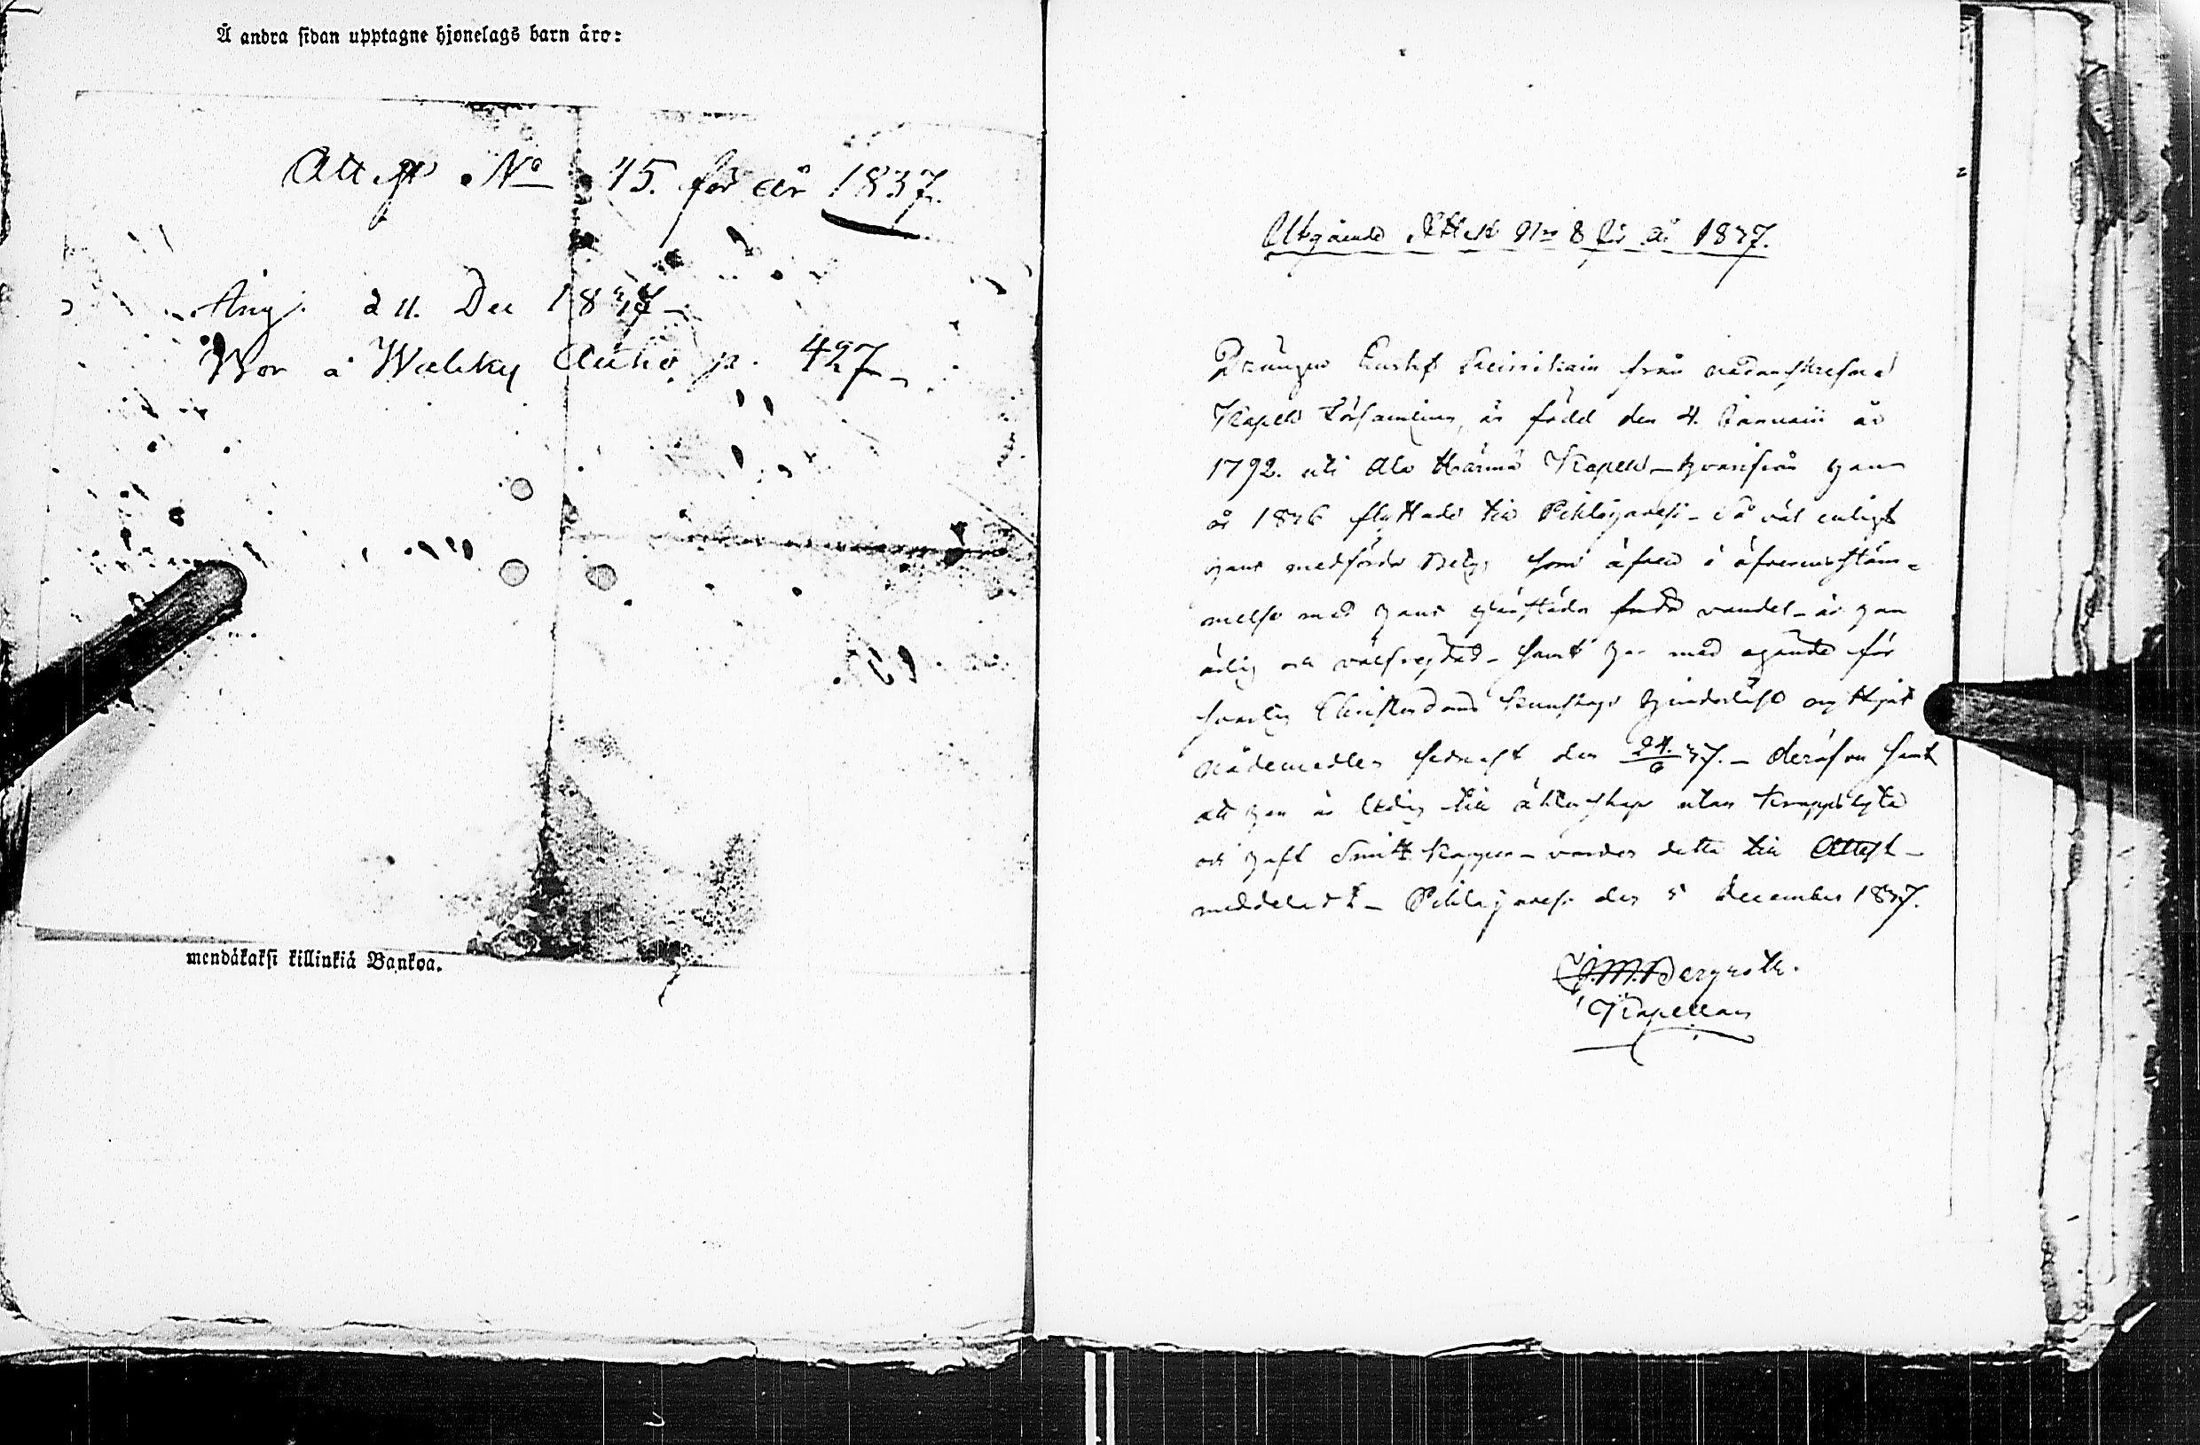 Å andra sidan upptagne hjonelags barn äro:
Attest No 45. för år 1837.
Ang. d 11. Dec 1837
Wor å Wälsky Autio p. 427
mendäkaksi killinkiä Bankoa.
Utgående Attest No 8 för år 1837.
Drängen Gustaf från nedanskrefne
Kapell Församling, är född den 4. Januarii år
1792. uti Ala Härmä Kapell hvarifrån han
år 1836 flyttade till Pihlajavesi - så väl enligt
hans medförda Betyg som äfven i öfverensstäm-
melse med hans härstädes förda vandel - är han
ärlig och välfrejdad - samt har med ägande för-
svarlig Christendoms kunskap hinderlöst nyttjat
nådemedlen sednast den 24/6 37. - derföre samt
att han är ledig till äktenskap utan kroppslyte
och haft Smitt koppor - varder detta till Attest
meddeladt - Pihlajavesi den 5 December 1837.
J. M. Bergroth.
Kapellan